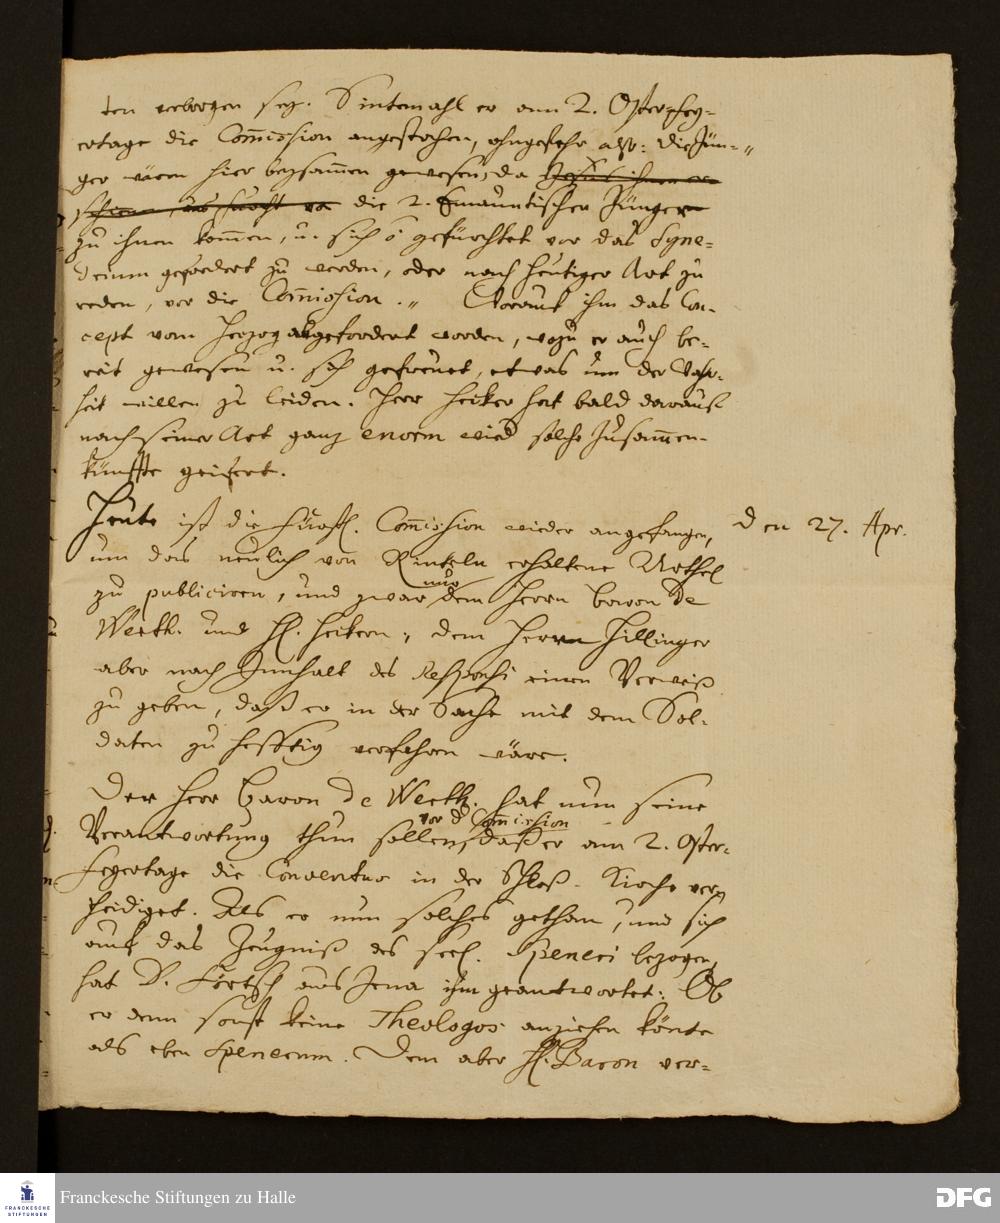 ten verborgen sey. Sintemahl er am 2. Osterfey-
ertage die Com̄ission angestochen, ohngefehr also: die Jün-„
ger wären hier beysam̄en gewesen, da
die 2. Emauntischen Jünger
zu ihnen kom̄en, u. sich ō gefürchtet vor das Syne-
drium gefordert zu werden, oder nach heutiger Art zu
reden, vor die Com̄ission.„ Worauf ihm das Con-
cept vom Herzog abgefordert worden, wozu er auch be-
reit gewesen u. sich gefreuet, etwas um der Wahr-
heit willen zu leiden. Herr Heiker hat bald darauf
nach seiner Art ganz enorm wied solche Zusam̄en-
künffte geifert.
Heute ist die Fürstl. Com̄ission wieder angefangen,
den 27. Apr.
um das neulich von Rinteln erhaltene Urthel
zu publiciren, und zwar nur dem Herrn Baron de
Werth. und H. Heikern; dem Herrn Hillinger
aber nach Innhalt des Responsi einen Verweiß
zu geben, daß er in der Sache mit dem Sol-
daten zu hefftig verfahren wäre.
Der Herr Baron de Werth. hat nun seine
vor d Com̄ission
Verantwortung thun sollen, daß er am 2. Oster-
Feyertage die Conventus in der Schloß-Kirche ver-
theidiget. Als er nun solches gethan, und sich
auf das Zeugniß des seel. Speneri bezogen,
hat D. Förtsch aus Jena ihm geantwortet: Ob
er denn sonst keine Theologos anziehen könte
als eben Spenerum. Dem aber H. Baron ver-
FRANCKESCHE
STIFTUNGEN
Franckesche Stiftungen zu Halle
DFG